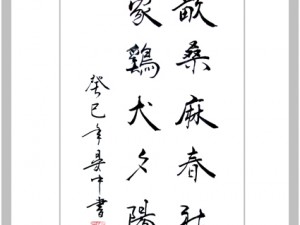 畝桑麻春社
家鷄犬夕陽
癸巳年夏中書